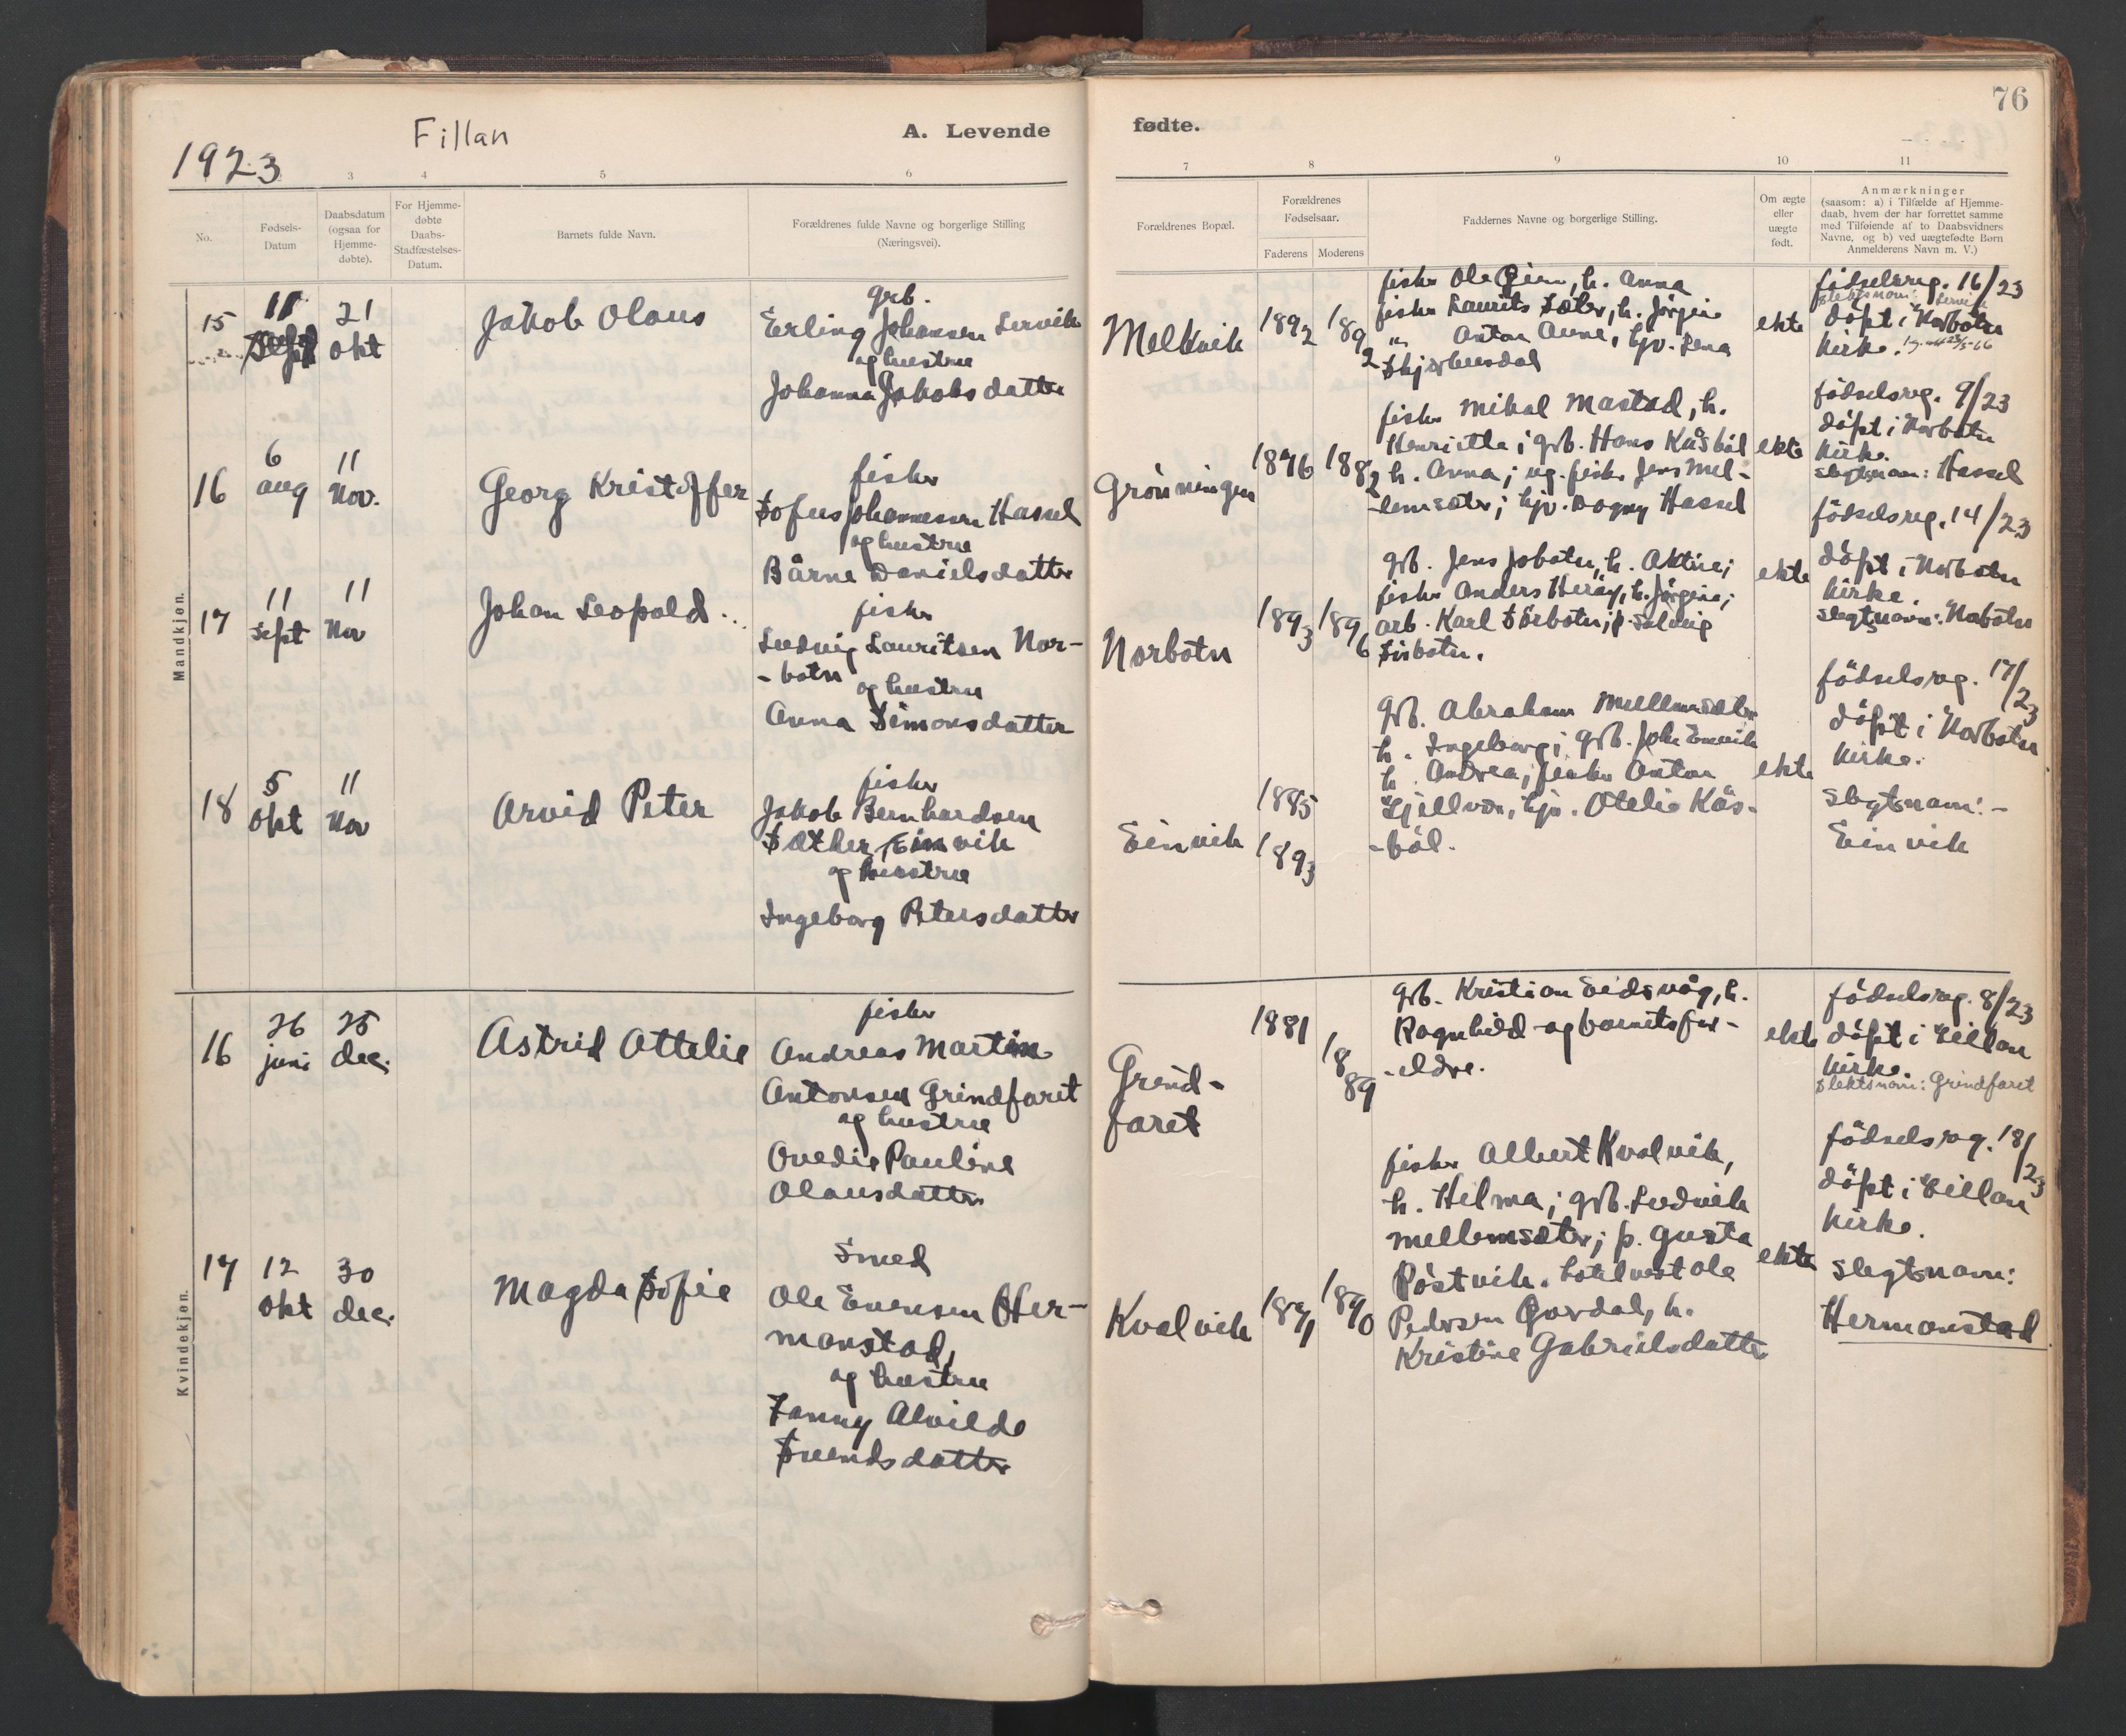 76
Fillan
A. Levende fødte.
1923
3 4 5 6 7 8 9 10 11
No.
Fødsels-
Datum
Daabsdatum
(ogsaa for
Hjemme-
døbte).
For Hjemme-
døbte
Daabs-
Stadfæstelses-
Datum.
Barnets fulde Navn.
Forældrenes fulde Navne og borgerlige Stilling
(Næringsvei).
Forældrenes Bopæl.
Forældrenes
Fødselsaar.
Faderens Moderens
Faddernes Navne og borgerlige Stilling.
Om ægte
eller
uægte
født.
Anmærkninger
(saasom: a) i Tilfælde af Hjemme-
daab, hvem der har forrettet samme
med Tilføiende af to Daabsvidners
Navne, og b) ved uægtefødte Børn
Anmelderens Navn m. V.)
Mandkjøn.
15
11
21
okt
Jakob Olaus
grb.
Erling Johansen Servik
og hustru
Johanna Jakobsdatter
Melkvik
1892
1892
fisker Ole Øien, h. Anna
fisker Laurits Sæter, h. Jörgine
" Anton Aune, tjv. Lena
ekte
födselsreg. 16/23
slektsnavn: Servik
döpt i Norbotn
kirke.
16
6
aug
11
Nov.
Georg Kristoffer
fisker
Sofus Johannessen Hassel
og hustru
Bårne Danielsdatter
Grönningen
1876
1882
fisker Mikal Mastad, h.
Henriette; grb. Hans Kåsböl
h. Anna; ug. fisker Jens Mel-
-lemsæter; tjv. Dagny Hassel
ekte
födselsreg. 9/23
döpt i Norbotn
kirke.
slegtsnavn: Hassel
17
11
sept
11
Nov
Johan Leopold
fisker
Ludvig Lauritsen Nor-
-botn
og hustru
Anna Simonsdatter
Norbotn
1893
1896
grb. Jens Jobotn, h. Aktine;
fisker Anders Heröy, h. Jörgine;
arb. Karl Sörbotn; p. Solveig
Sörbotn.
ekte
födselsreg. 14/23
döpt i Norbotn
kirke.
slegtsnavn: Nabotn
18
5
okt
11
Nov
Arvid Peter
fisker
Jakob Bernhardsen
Sæther, Einvik
og hustru
Ingeborg Petersdatter
Einvik
1885
1893
grb. Abraham Mellemsæter
h. Ingeborg; grb. Johs Einvik
h. Andrea; fisker Anton
Fjellvær, tjv. Otelie Kås-
-böl.
ekte
födselsreg. 17/23
döpt i Norbotn
kirke.
slegtsnavn: -
Einvik
Kvindekjøn.
16
26
juni
25
dec.
Astrid Ottelie
fisker
Andreas Martin
Antonsen Grindfaret
og hustru
Ovedie Pauline
Olausdatter
Grind-
faret
1881
1889
grb. Kristian Eidsvåg, h.
Ragnhild og barnets for-
-eldre.
ekte
födselsreg. 8/23
döpt i Fillan
kirke.
slektsnavn: Grindfaret
17
12
okt
30
dec.
Magda Sofie
Smed
Ole Evensen Her-
manstad,
og hustru
Fanny Alvilde
Svendsdatter
Kvalvik
1871
1890
fisker Albert Kvalvik,
h. Hilma; grb. Ludvik
Mellemsæter; p. Gusta
Röstvik. hotelvert Ole
Pedersen Gjördal, h.
Kristine Gabrielsdatter
ekte
födselsreg. 18/23
döpt i Fillan
kirke.
slegtsnavn:
Hermanstad